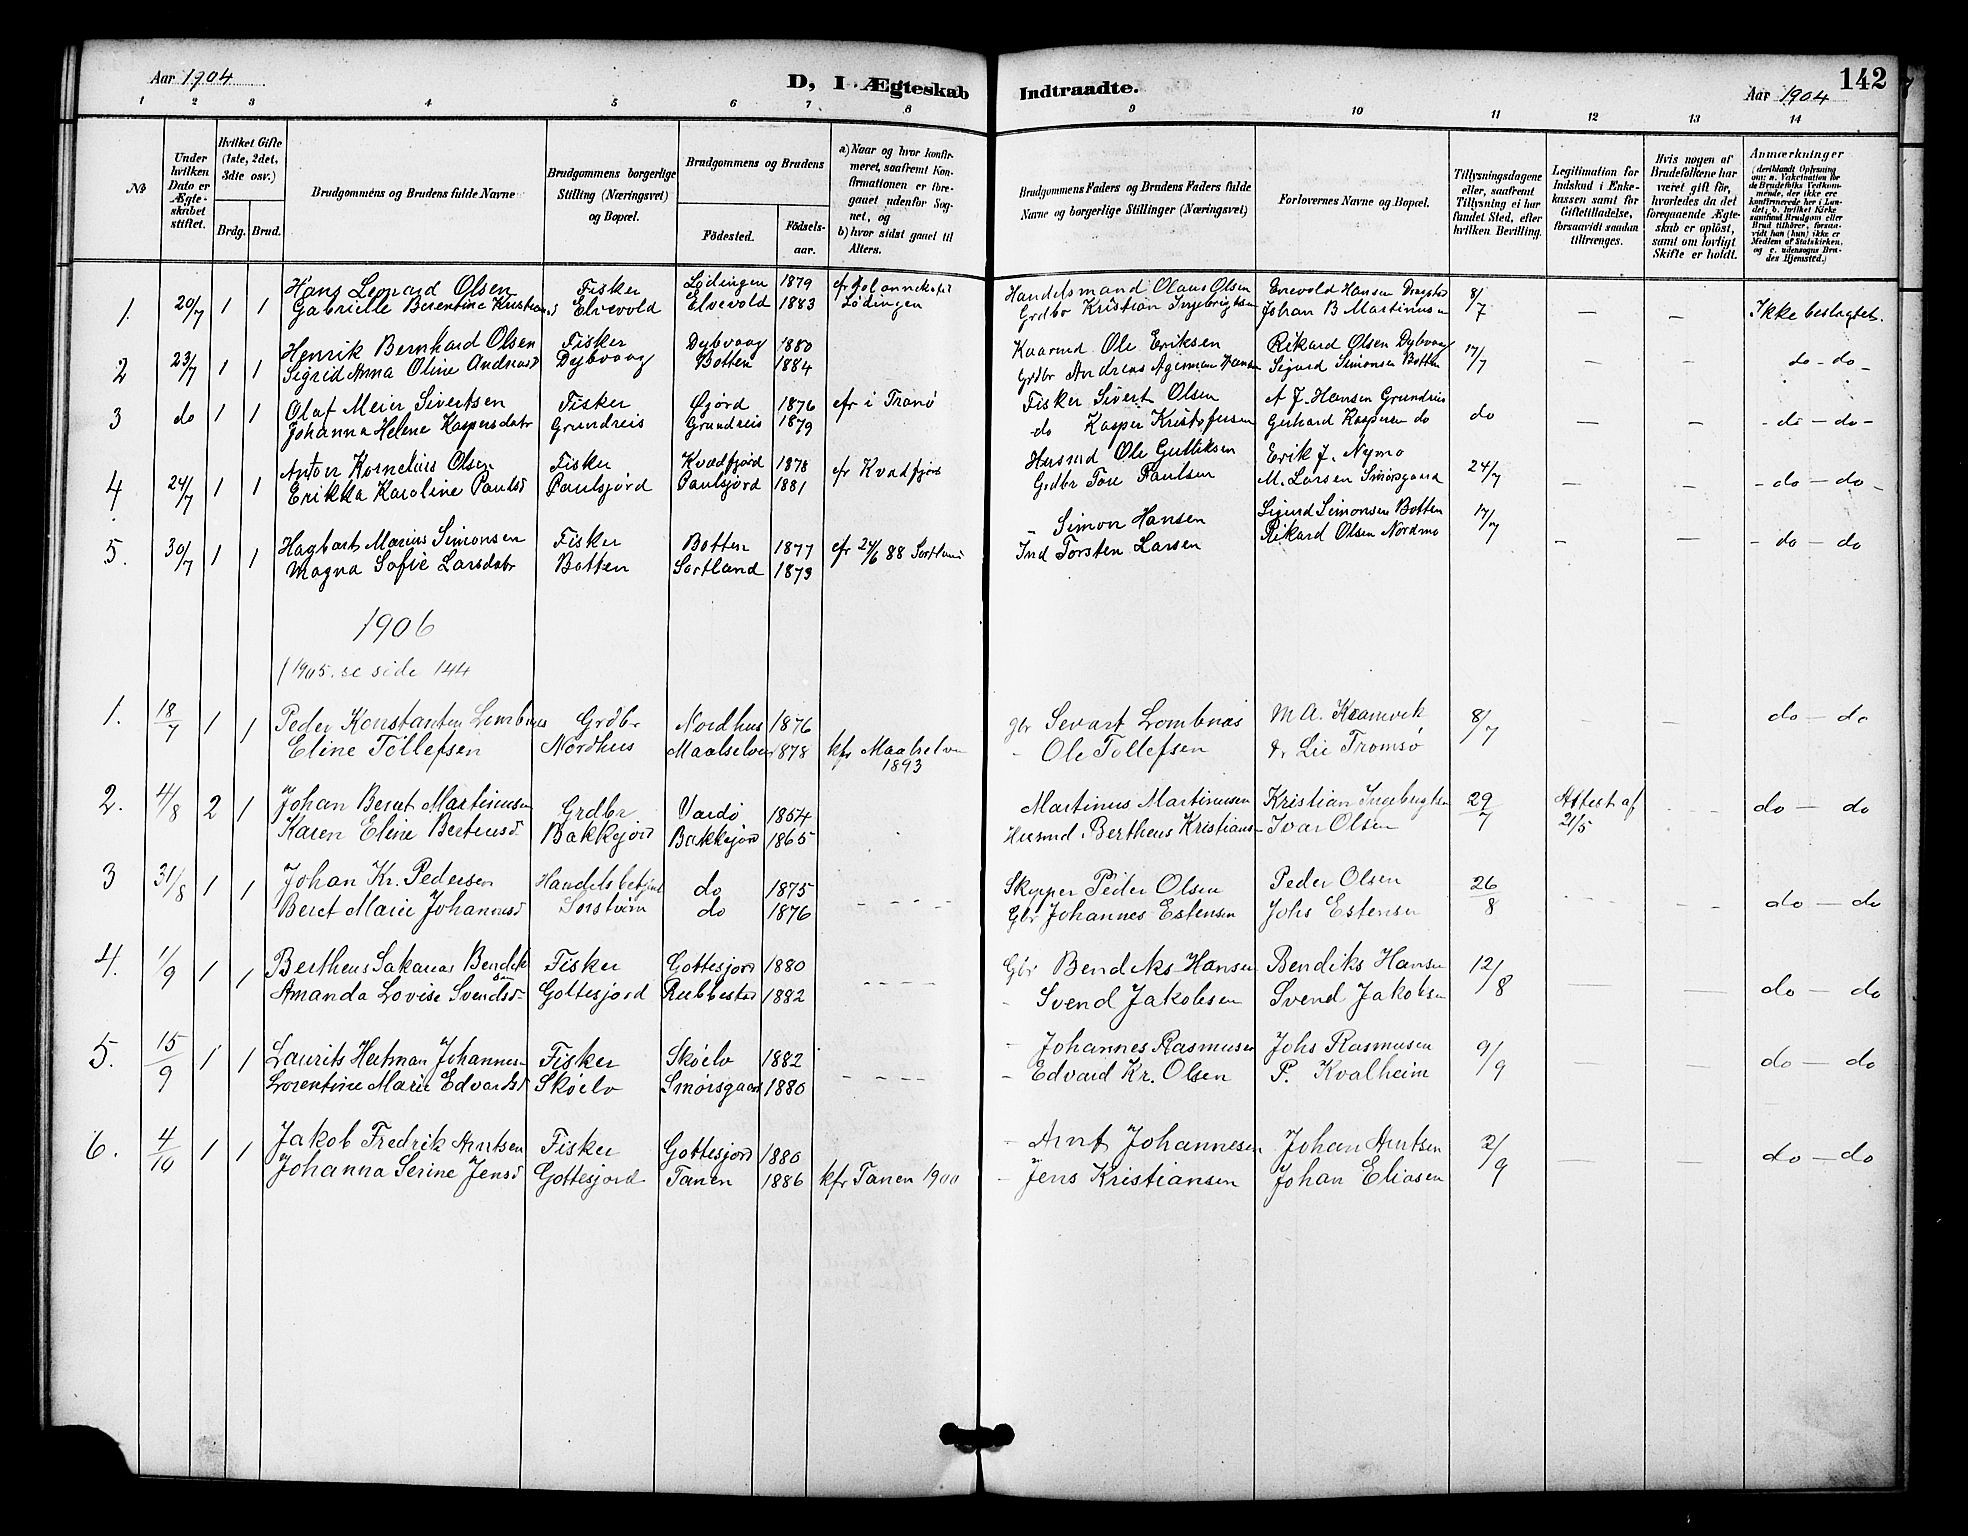 Aar 1904 D, I. Ægteskab Indtraadte. Aar 1904 142
1 2 3 4 5 6 7 8 9 10 11 12 13 14
No
Under hvilken Dato er Ægteskabet stiftet.
Hvilket Gifte (1ste, 2det, 3dte osv.)
Brdg. Brud.
Brudgommens og Brudens fulde Navne
Brudgommens borgerlige Stilling (Næringsvei) og Bopæl.
Brudgommens og Brudens
Födested. Födsels-aar.
a) Naar og hvor konfirmeret, saafremt Konfirmationen er foregaaet udenfor Sognet, og
b) hvor sidst gaaet til Alters.
Brudgommens Faders og Brudens Faders fulde Navne og borgerlige Stillinger (Næringsvei)
Forlovernes Navne og Bopæl.
Tillysningsdagene eller, saafremt Tillysning ei har fundet Sted, efter hvilken Bevilling.
Legitimation for Indskud i Enkekassen samt for Giftetilladelse, forsaavidt saadan tiltrænges.
Hvis nogen af Brudefolkene har været gift för, hvorledes da det foregaaende Ægteskab er oplöst, samt om lovligt Skifte er holdt.
Anmærkninger (deriblandt Oplysning om: a. Vakcination for de Brudefolks Vedkommende, der ikke ere konfirmerede her i Landet, b. hvilket Kirkesamfund Brudgom eller Brud tilhörer, forsaavidt han (hun) ikke er Medlem af Statskirken, og c. udensogns Brudes Hjemsted.)
1. 20/7 1 1 Hans Leonard Olsen Fisker Lödingen 1879 Handelsmand Olaus Olsen Enevold Hansen 8/7 — — Ikke beslagtet.
Gabrielle Berentine Elvevold Elvevold 1883 Lödingen Grdbr Kristian Ingebrigtsen Johan B Martinusen
2 23/7 1 1 Henrik Bernhard Olsen Fisker Dybvaag 1880 Ole Eriksen Rikard Olsen Dybvaag 17/7 — — do - do -
Sigrid Anna Oline Andreasd Dybvaag Botten 1884 Grdbr Andreas Hansen Sigurd Simonsen Botten
3 do 1 1 Olaf Meier Sivertsen Fisker Gjörd 1876 cfr i Tranö Fisker Sivert Olsen A J. Hansen Grundreis do — — - do - do -
Johanna Helene Kaspersdatr Grundreis Grundreis 1879 do Kasper Kristofersen Gerhard Kaspersen do
4 24/7 1 1 Anton Kornelius Olsen Fisker Kvædfjord 1878 cfr Kvædfjord Husmd Ole Gulliksen Erik J. Nymo 24/7 — — - do - do -
Erikka Karoline Paulsd Paulsjord Paulsjord 1881 Grdbr Paulsen M. Larsen Smörsgaard
5. 30/7 1 1 Hagbart Marius Simonsen Fisker Botten 1877 cfr 24/6 88 Sortland - Simon Hansen Sigurd Simonsen Botten 17/7 - — - do - do
Magna Sofie Larsdatr Botten Sortland 1873 Ind Torsten Larsen Rikard Olsen Nordmo
1906
(1905. se side 144
1. 18/7 1 1 Peder Konstantin Grdbr Nordhus 1876 gbr Sevart Lombnäs M A. Kramvik 8/7 - - do - do
Eline Tollefsen Nordhus Maalselven 1878 kfr Maalselven 1893 - Ole Tollefsen Lie Tromsö
2. 4/8 2 1 Johan Berat Martinusen Grdbr Vardö 1854 Martinus Martinusen Kristian Ingebrigtsen 29/7 Attest af 21/5 - - do - do
Karen Eline Berteusd Bakkejord Bakkejord 1865 Husmd. Bertheus Kristians Ivar Olsen
3 31/8 1 1 Johan Kr. Pedersen Handelsbetjent do 1875 - - - - Skipper Peder Olsen Peder Olsen 26/8 - - - - - do - do
Beret Marie Johannesd Sorstrøm do 1876 Gbr Johannes Estensen Johs Estensen
4. 1/9 1 1 Bertheus Sakarias Bendiksen Fisker Gottesjord 1880 - - - - Gbr Bendiks Hansen Bendiks Hansen 12/8 — — do - do
Amanda Lovise Svendsd Gottesjord Rubbestad 1882 - Svend Jakobsen Svend Jakobsen
5. 15/9 1 1 Laurits Hartman Johannesen Fisker Skøelv 1882 - - - - - Johannes Rasmusen Johs Rasmusen 9/9 — — do - do
Lorentine Marie Edvardsd Skøelv Smørsgaard 1880 - Edvard Kr. Olsen P. Kvalheim
6. 4/10 1 1 Jakob Fredrik Arntsen Fisker Gottesjord 1880 - Arnt Johannesen Johan Arntsen 2/9 — — do - do
Johanna Serine Jensd Gottesjord Tanen 1886 kfr Tanen 1900 - Jens Kristiansen Johan Eliasen